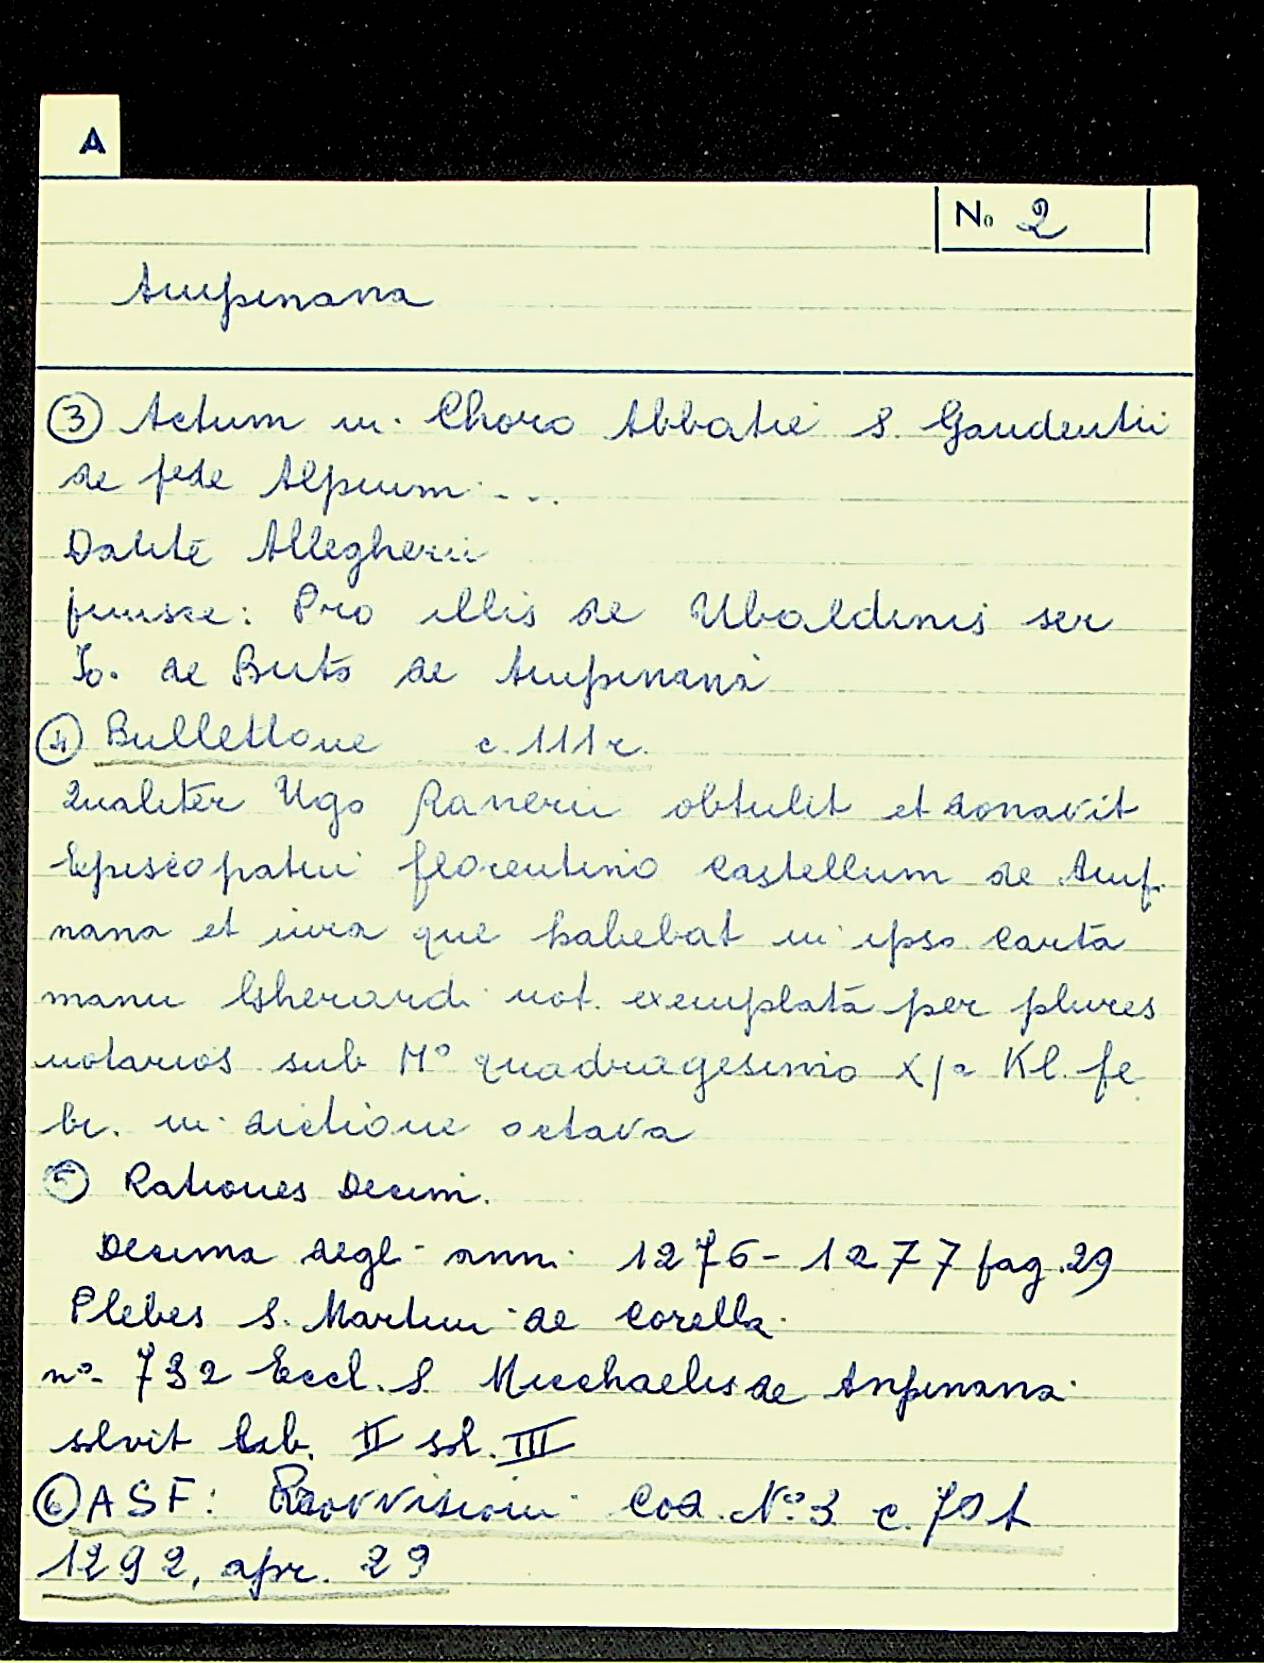 A
No 2
Ampinana
③ Actum in Choro Abbatie S. Gaudentii
de pede Alpium ...
Dante Allegherii
finisce: Pro illis de Ubaldinis ser
Io. de Buto de Ampinana
④ Bullettone c. 111 r.
Qualiter Ugo Ranerii obtulit et donavit
Episcopatui florentino castellum de Ampi
nana et iura que habebat in ipso carta
manu Gherardi not. exemplata per plures
notarios sub M° quadragesimo Kl. fe
br. indictione octava
⑤ Rationes Decim.
Decima degli anni 1276-1277 pag. 29
Plebes S. Martini de Corella
n° 732 Eccl. S. Micchaelis de Anpinana
solvit lib. II sol. III
⑥ ASF: Provvisioni Cod. N° 3 c. 70 t
1292, apr. 29